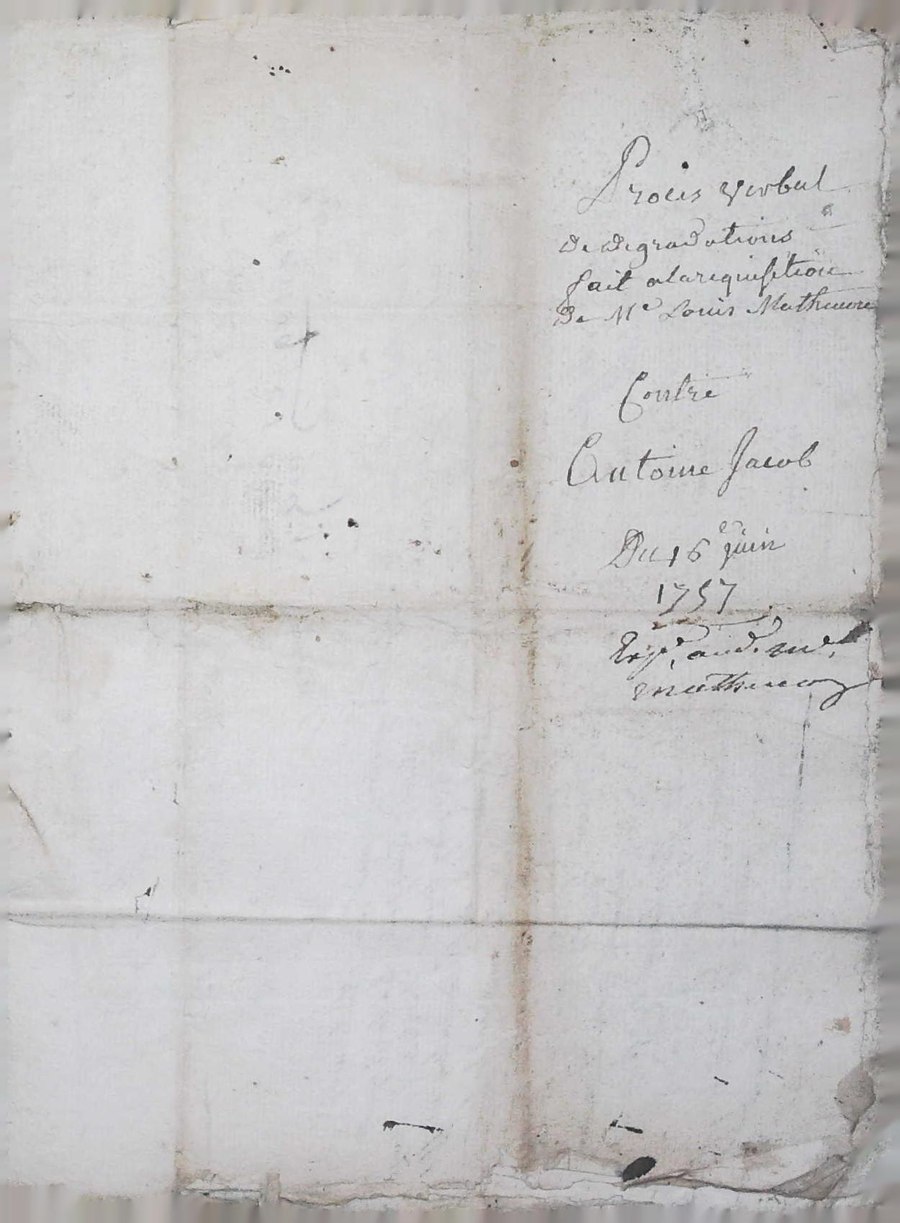 Proces verbal
de degradations
fait alarequisition
de Me Louis
Contre
Antoine Jacob
Du 16e juin
1757